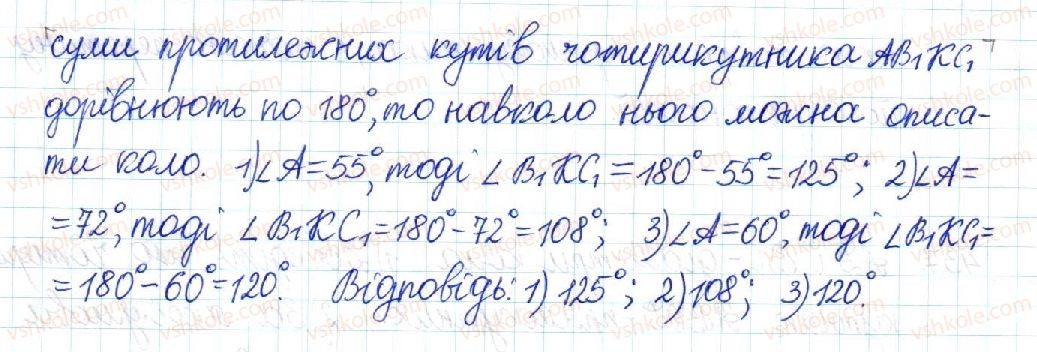 суми протилежних кутів чотирикутника AB₁KC₁
дорівнюють по 180°, то навколо нього можна описа-
ти коло. 1) ∠A=55°, тоді ∠B₁KC₁=180°-55°=125°; 2) ∠A=
=72°, тоді ∠B₁KC₁=180°-72°=108°; 3) ∠A=60°, тоді ∠B₁KC₁=
=180°-60°=120°. Відповідь: 1) 125°; 2) 108°; 3) 120°.
vshkole.com